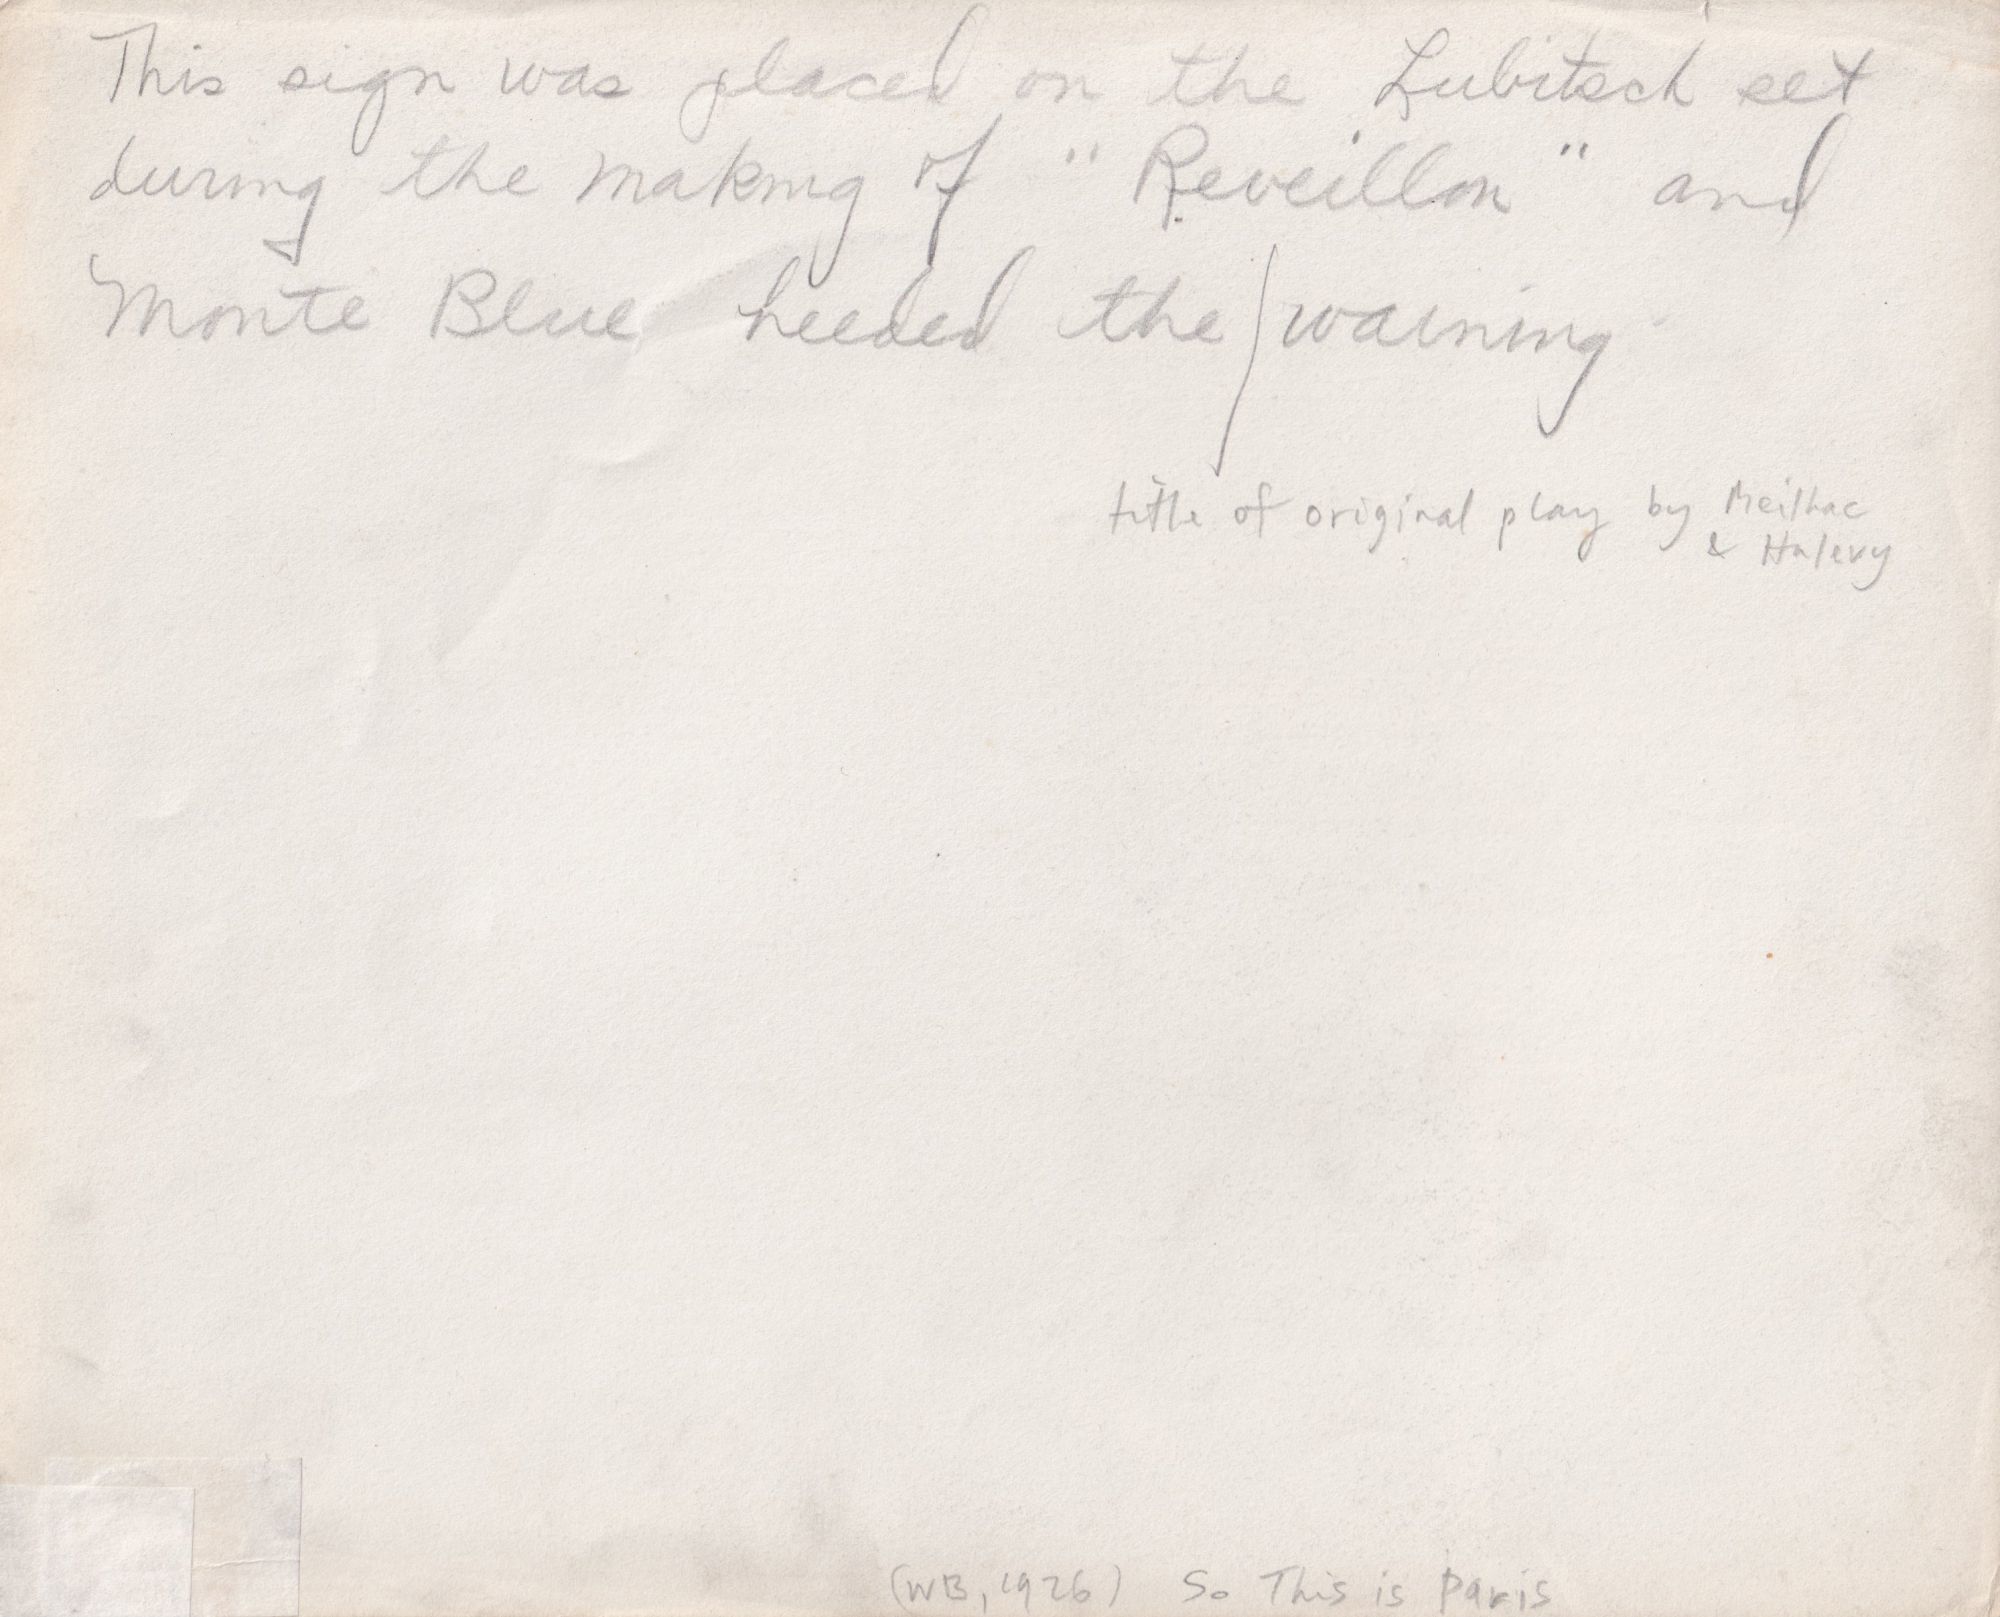 This sign was placed on the Lubitsch set
during the making of "Reveillon" and
Monte Blue heeded the warning
title of original play by Meilhac
& Halevy
(WB, 1926) So This is Paris